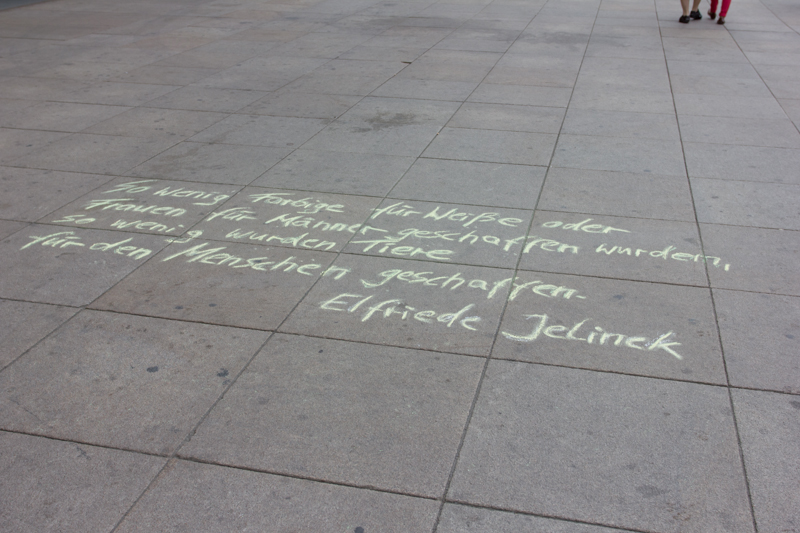 So wenig Farbige für Weiße oder
Frauen für Männer geschaffen wurden,
so wenig wurden Tiere
für den Menschen geschaffen.
Elfriede Jelinek